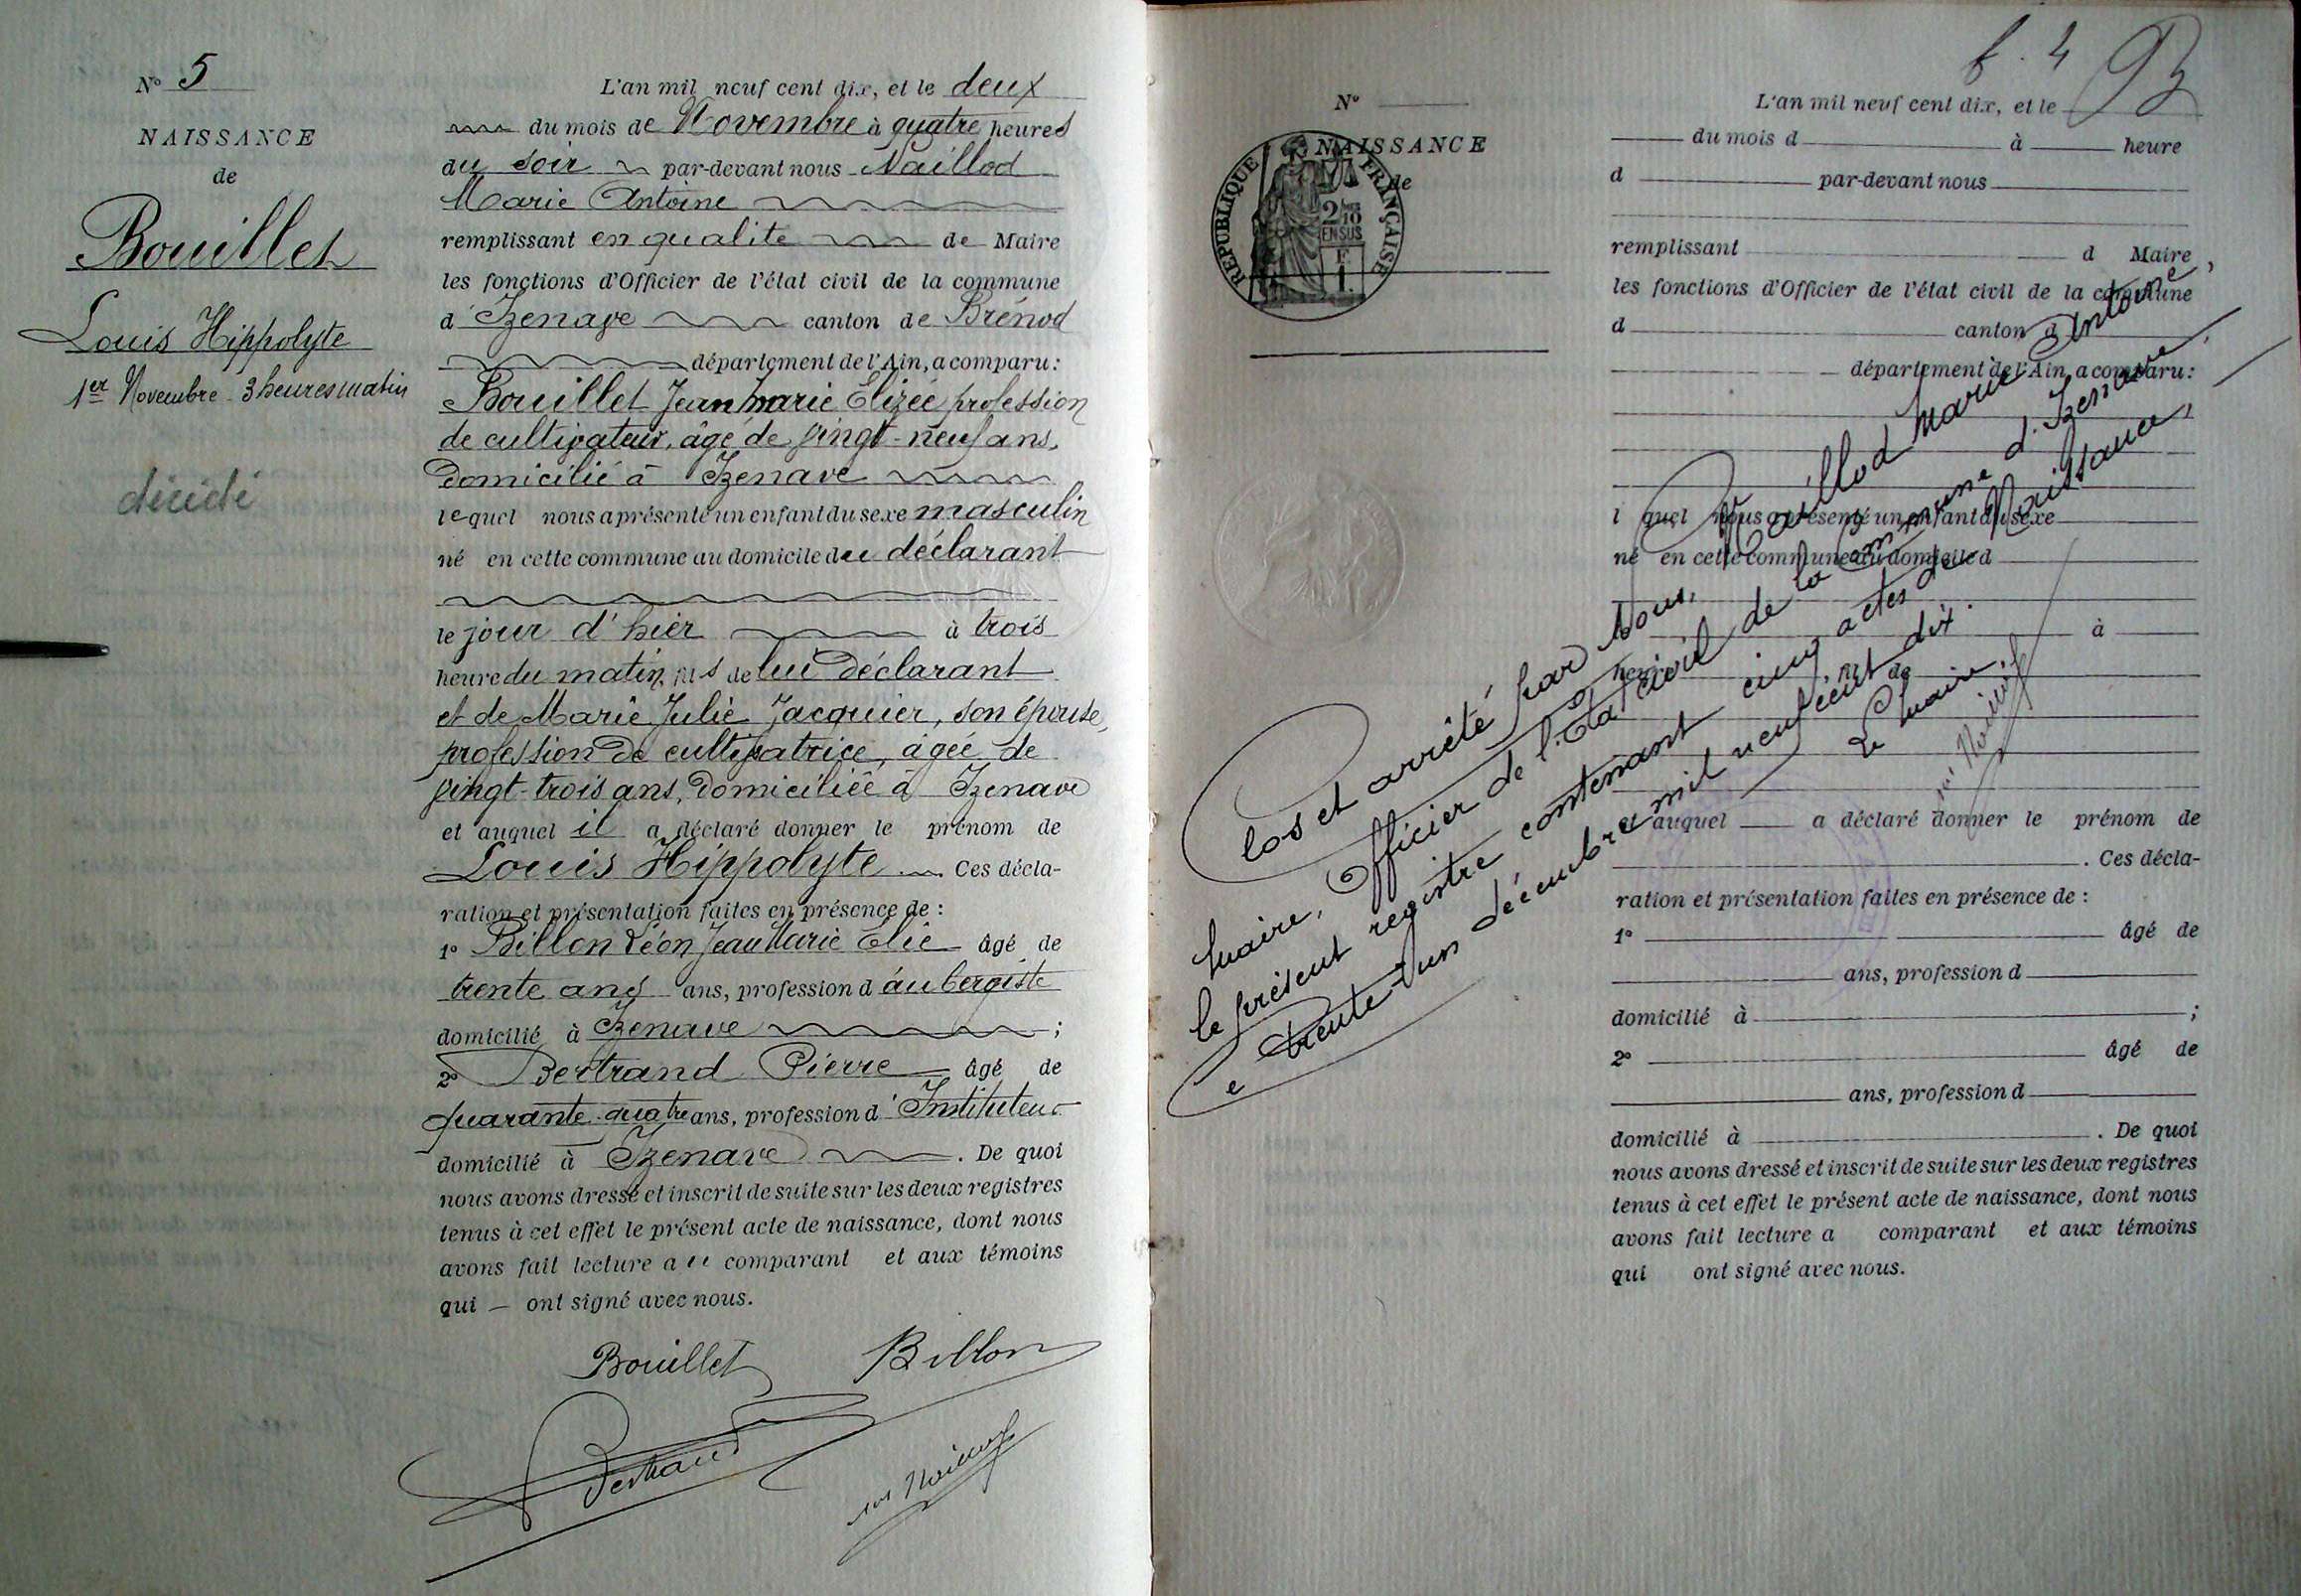 N° 5
NAISSANCE
de
Bouillet
Louis Hippolyte
1er Novembre - 3 heures matin
décédé
L'an mil neuf cent dix, et le deux
du mois de Novembre à quatre heures
du soir par-devant nous Naillod
Marie Antoine
remplissant en qualité de Maire
les fonctions d'Officier de l'état civil de la commune
d'Izenave canton de Brénod
département de l'Ain, a comparu :
Bouillet Jean Marie Elizée profession
de cultivateur, âgé de vingt-neuf ans,
domicilié à Izenave
lequel nous a présenté un enfant du sexe masculin
né en cette commune au domicile du déclarant
le jour d'hier à trois
heure du matin, fils de lui déclarant
et de Marie Julie Jacquier, son épouse,
profession de cultivatrice, âgée de
vingt-trois ans, domiciliée à Izenave
et auquel il a déclaré donner le prénom de
Louis Hippolyte . Ces décla-
ration et présentation faites en présence de :
1° Billon Léon Jean Marie Elie âgé de
trente ans ans, profession d'aubergiste
domicilié à Izenave ;
2° Bertrand Pierre âgé de
quarante-quatre ans, profession d'Instituteur
domicilié à Izenave . De quoi
nous avons dressé et inscrit de suite sur les deux registres
tenus à cet effet le présent acte de naissance, dont nous
avons fait lecture au comparant et aux témoins
qui — ont signé avec nous.
Bouillet Billon
Bertrand
f. 4
N°
NAISSANCE
de
REPUBLIQUE FRANÇAISE
2/10
EN SUS
F.
1.
L'an mil neuf cent dix, et le
du mois d à heure
d par-devant nous
remplissant d Maire
les fonctions d'Officier de l'état civil de la commune
d canton d
département de l'Ain, a comparu :
l quel nous a présenté un enfant du sexe
né en cette commune au domicile d
le à
heure , fil de
et auquel a déclaré donner le prénom de
. Ces décla-
ration et présentation faites en présence de :
1° âgé de
ans, profession d
domicilié à ;
2° âgé de
ans, profession d
domicilié à . De quoi
nous avons dressé et inscrit de suite sur les deux registres
tenus à cet effet le présent acte de naissance, dont nous
avons fait lecture a comparant et aux témoins
qui ont signé avec nous.
Clos et arrêté par Nous, Naillod Marie Antoine,
maire, Officier de l'Etat civil de la Commune d'Izenave,
le présent registre contenant cinq actes de Naissance,
ce trente-un décembre mil neuf cent dix.
Le maire,